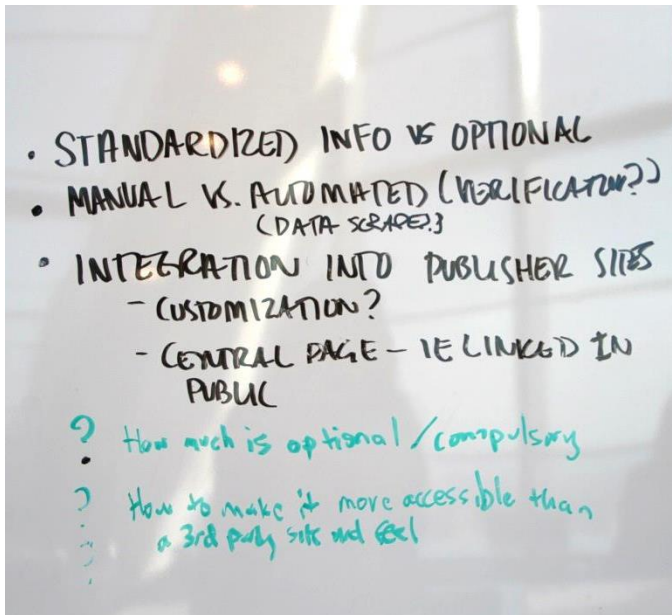 • STANDARDIZED INFO VS OPTIONAL
• MANUAL VS. AUTOMATED (VERIFICATION?)
(DATA SCRAPE?)
• INTEGRATION INTO PUBLISHER SITES
- CUSTOMIZATION?
- CENTRAL PAGE – IE LINKED IN
PUBLIC
? How much is optional / compulsory
? How to make it more accessible than
a 3rd party site and feel